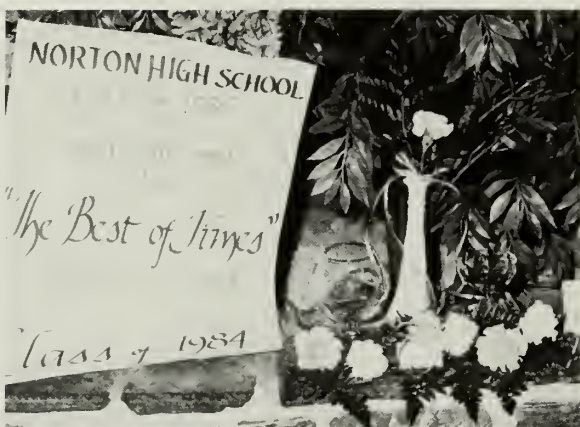 NORTON HIGH SCHOOL
"The Best of Times"
Class of 1984